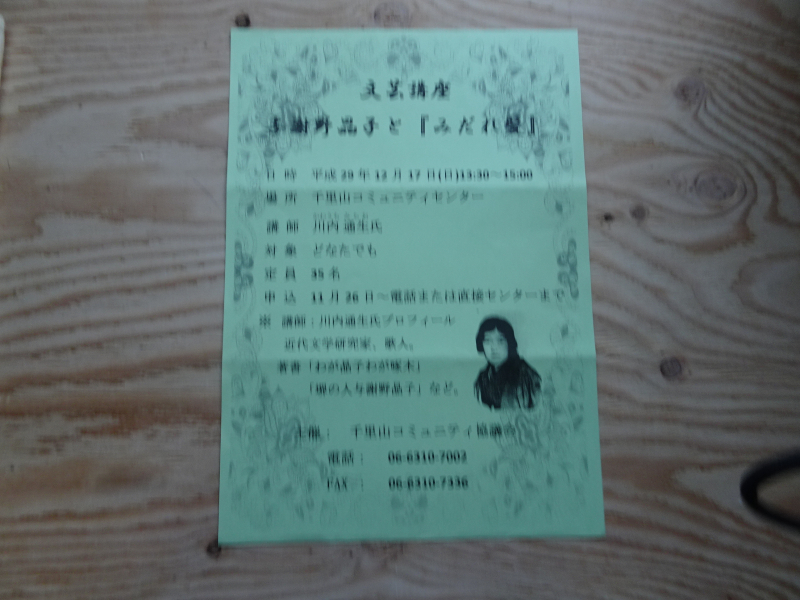 文芸講座
与謝野晶子と『みだれ髪』
日 時 平成29年12月17日(日)13:30～15:00
場 所 千里山コミュニティセンター
講 師 川内通生氏
対 象 どなたでも
定 員 35名
申 込 11月26日～電話または直接センターまで
※ 講師：川内通生氏プロフィール
近代文学研究家、歌人。
著書「わが晶子わが啄木」
「堺の人与謝野晶子」など。
主催： 千里山コミュニティ協議会
電話： 06-6310-7002
FAX ： 06-6310-7336